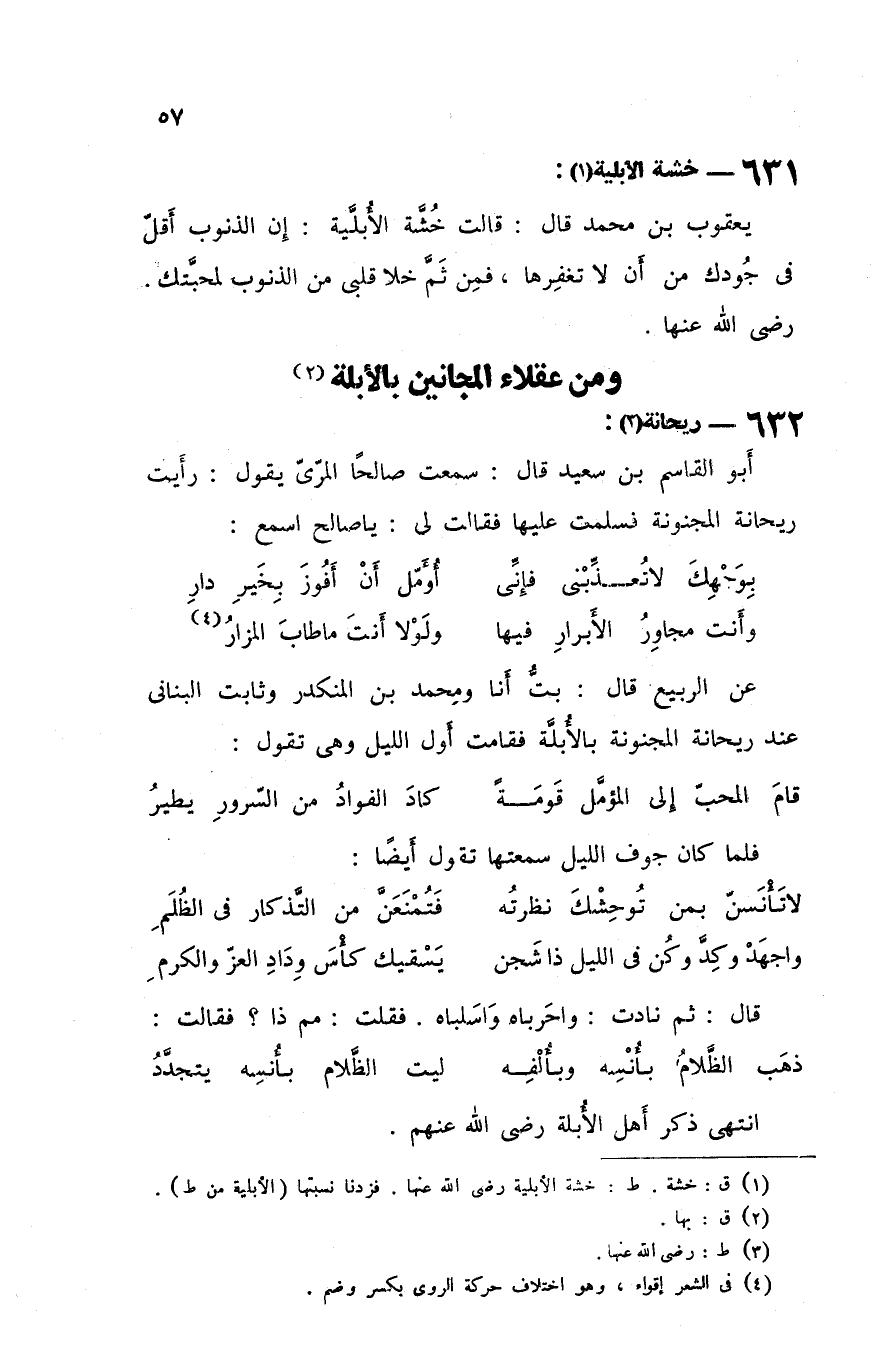 ٥٧
٦٣١ — خشة الأبلية(١) :
يعقوب بن محمد قال : قالت خُشَّة الأُبلَّية : إن الذنوب أَقلّ
فى جُودك من أَن لا تغفِرها ، فمِن ثَمَّ خلا قلبى من الذنوب لمحبَّتك .
رضى الله عنها .
ومن عقلاء المجانين بالأبلة (٢)
٦٣٢ — ريحانة(٣) :
أَبو القاسم بن سعيد قال : سمعت صالحًا المرّىّ يقول : رأَيت
ريحانة المجنونة فسلمت عليها فقالت لى : ياصالح اسمع :
بِوَجْهِكَ لاتُعــذِّبْنى فإِنِّى أُوَّمّل أَنْ أَفُوزَ بِخَيرِ دارِ
وأَنت مجاورُ الأَبرارِ فيها ولَوْلا أَنتَ ماطابَ المزارُ (٤)
عن الربيع قال : بتُّ أَنا ومحمد بن المنكدر وثابت البنانى
عند ريحانة المجنونة بالأُبلَّة فقامت أَول الليل وهى تقول :
قامَ المحبّ إِلى المؤمَّل قَومَــةً كادَ الفوادُ من السّرورِ يطيرُ
فلما كان جوف الليل سمعتها تقول أَيضًا :
لاتَأْنَسنّ بمن تُوحِشْكَ نظرتُه فَتُمْنَعَنَّ من التَّذكار فى الظُلَمِ
واجهَدْ وكِدَّ وكُن فى الليل ذا شَجن يَسْقيك كأْسَ وِدَادِ العزّ والكرمِ
قال : ثم نادت : واحَرباه وَاسَلباه . فقلت : مم ذا ؟ فقالت :
ذهَب الظَّلامُ بأُنْسِه وبأُلْفِــه ليت الظَّلام بأُنسِه يتجدَّدُ
انتهى ذكر أَهل الأُبلة رضى الله عنهم .
(١) ق : خشة . ط : خشة الأبلية رضى الله عنها . فزدنا نسبتها (الأبلية من ط) .
(٢) ق : بها .
(٣) ط : رضى الله عنها .
(٤) فى الشعر إقواء ، وهو اختلاف حركة الروى بكسر وضم .